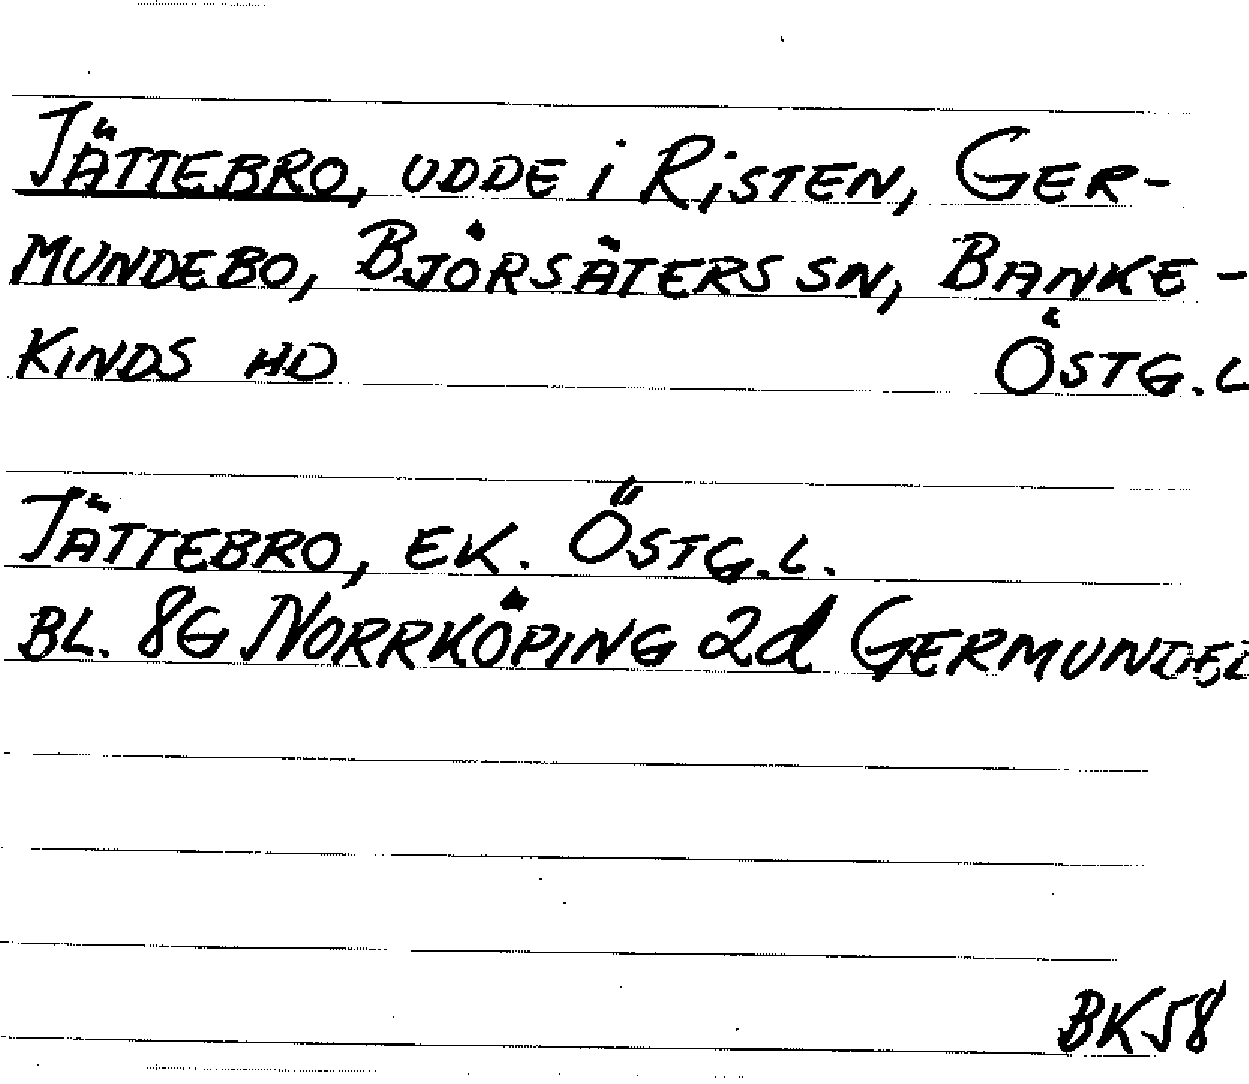 JÄTTEBRO, UDDE i RiSTEN, GER-
MUNDEBO, BJÖRSÄTERS SN, BANKE-
KINDS HD ÖSTG.L
JÄTTEBRO, EK. ÖSTG.L.
BL. 8G NORRKÖPING 2d GERMUNDEB
BK58